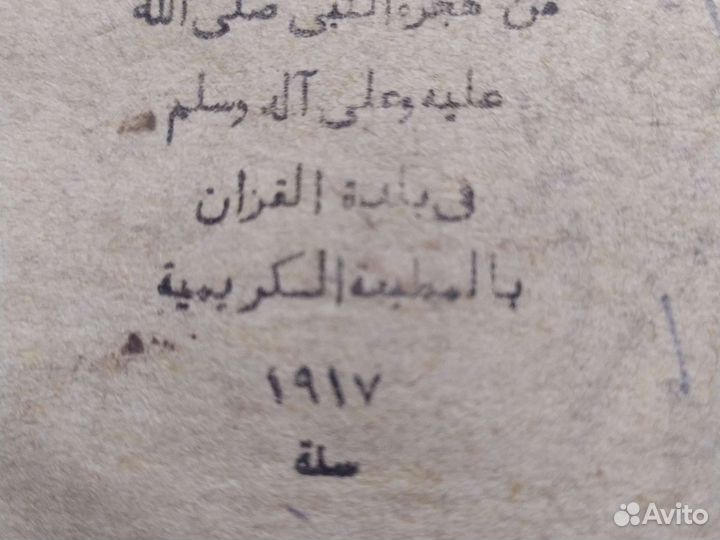 من هجرة النبى صلى الله
عليه وعلى آله وسلم
فى بلدة القزان
بالمطبعة الكريمية
١٩١٧
سنة
Avito